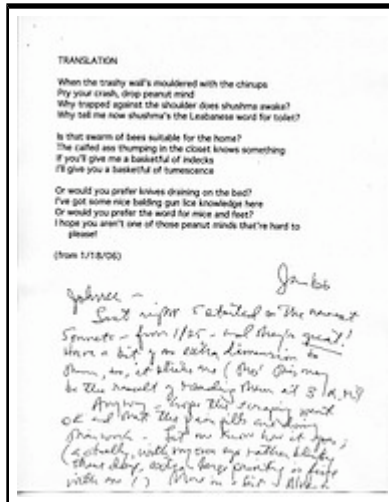 TRANSLATION
When the trashy wall's mouldered with the chirrups
Pry your crash, drop peanut mind
Why trapped against the shoulder does shushma awake?
Why tell me now shushma's the Leabanese word for toilet?
Is that swarm of bees suitable for the home?
The calfed ass thumping in the closet knows something
If you'll give me a basketful of indecks
I'll give you a basketful of tumescence
Or would you prefer knives draining on the bed?
I've got some nice balding gun lice knowledge here
Or would you prefer the word for mice and feet?
I hope you aren't one of those peanut minds that're hard to
please!
(from 1/18/06)
Last night I started on the newest
Sonnets - from 1/25 - and they're great!
Have a bit of an extra dimension to
them, or, it strikes me (this may
be the result of reading them at 3 A.M.)
Anyway - hope the scraping went
OK and that the pain pills are doing
their work - Let me know how it goes,
(actually, with my own eye rather blinky
these days, extra large printing is fine
with me!) More in a bit -